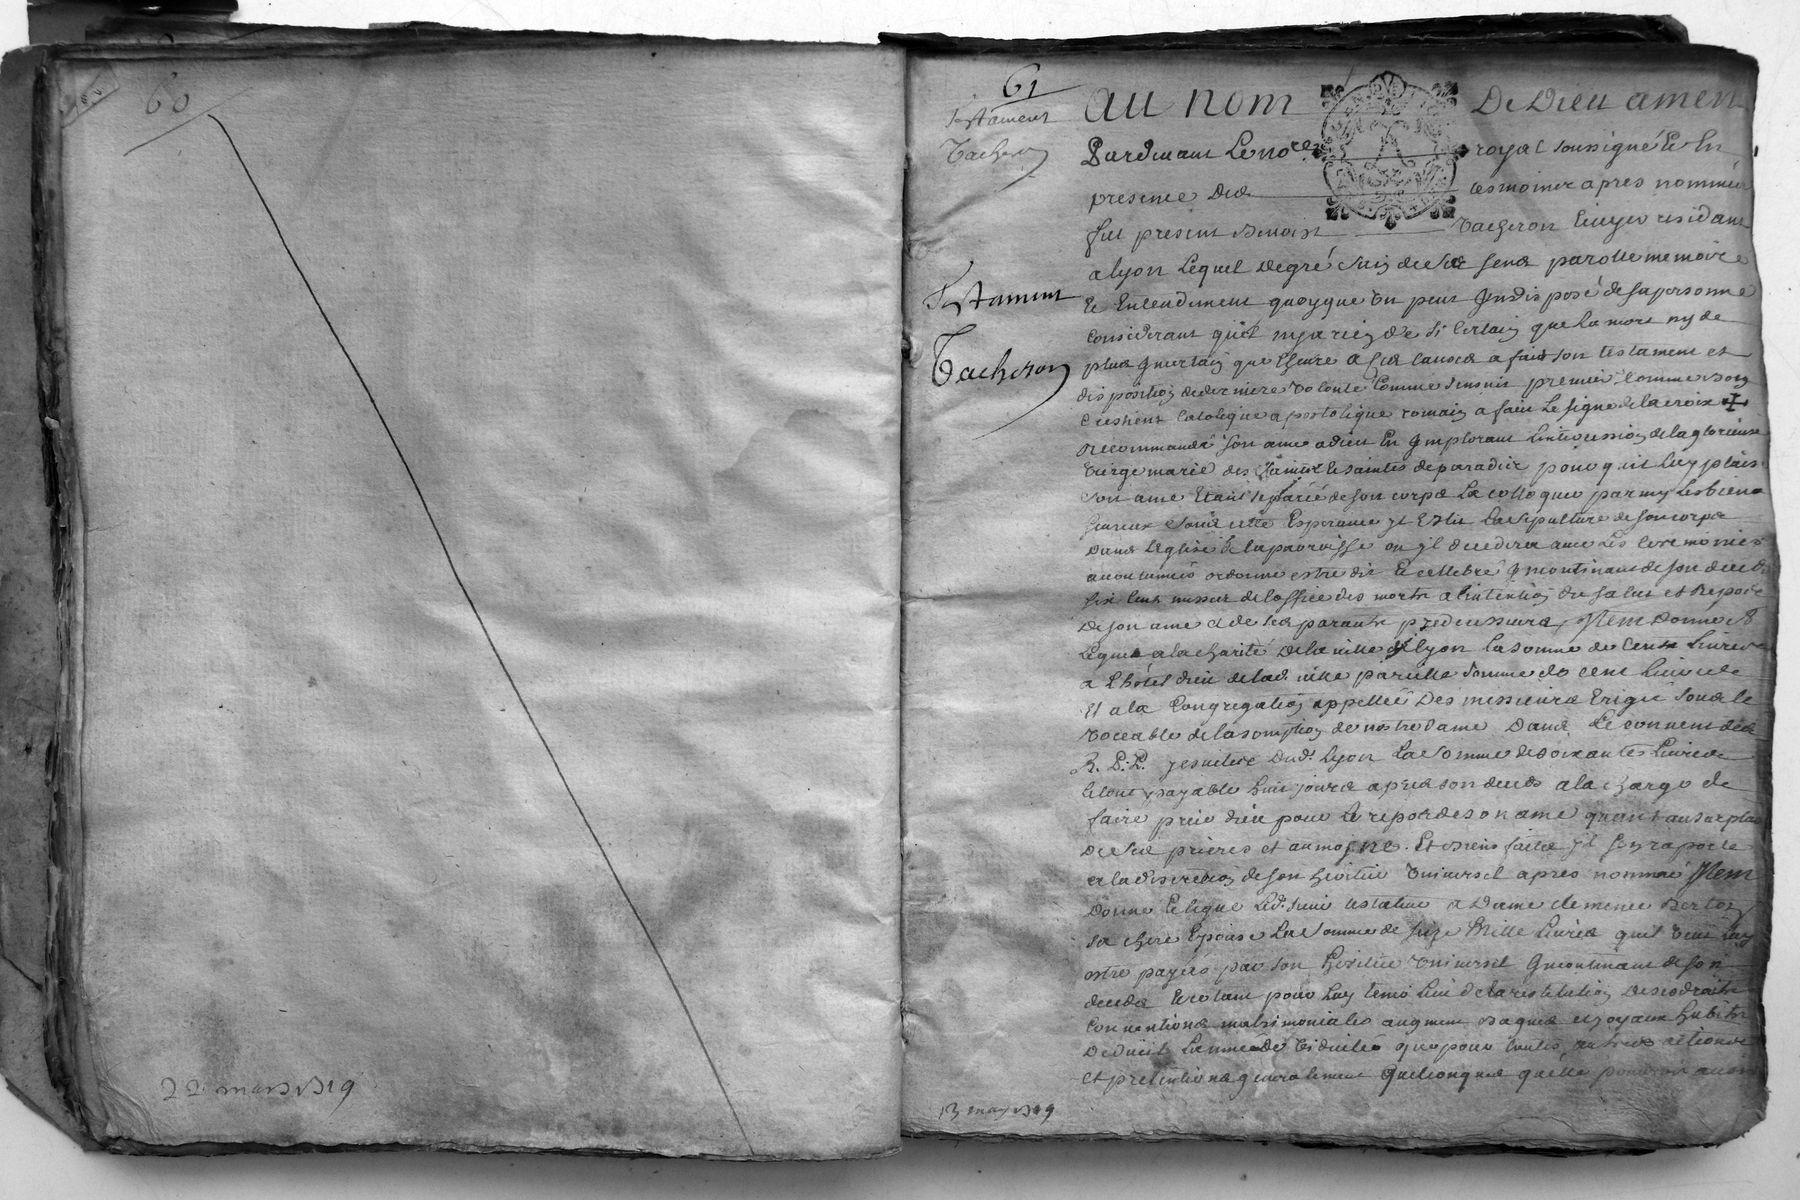 60
22 mars 1719
61
Testament
Tacheron
Testament
Tacheron
au nom De Dieu amen
Pardevant Le nore royal soussigné Et En
presence des tesmoins apres nommés
fut present Benoist Tacheron Ecuyer residant
a lyon Lequel de gré sain de ses sens parolle memoire
Et Entendement quoyque un peu Indisposé de sa personne
Considerant quil nya rien de si Certain que La mort ny de
plus Incertain que Lheure a Ces Causes a fait son testament et
disposition de derniere volonté Comme sensuit premier Comme bon
Crestient Catolique apostolique romain a fait Le signe de la croix ✝
recommandé son ame a dieu En Implorant Lintercession de la glorieuse
vierge marie des saints Et saintes de paradis pour quil Luy plaise
son ame Etant separée de son corps La colloquer parmy Les biens
heureux sous cette Esperance il Eslit La sepulture de son corps
dans Leglise de la parroisse ou il decedera avec Les Ceremonies
accoutumés ordonne estre dit Et cellebré Incontinant de son deceds
six Cent messes de loffice des morts a lintention du salut et repos
de son ame et de ses parants predecesseurs, Item donne Et
Legue a la charité de la ville de lyon La somme de Cent Livres
a Lhotel dieu de lad. ville pareille somme de cent Livres
Et a la Congregation appellée des messieurs Erigée sous le
vocable de lasomption de nostre dame dans Le convent des
R. P. P. jesuites dud. Lyon La somme de soixantes Livres
Le tout payable huit jours apres son deceds a la charge de
faire prier dieu pour le repos de son ame quant au surplus
de ses prieres et aumosnes Et biens faits il sen raporte
a la discretion de son heritier universel apres nommé Item
donne Et legue Led. sieur testateur a Dame clemence Berton
sa chere Epouse La somme de seize Mille Livres quil veut Luy
estre payées par son heritier universel Incontinant de son
deceds Et ce tant pour Luy tenir lieu de la restitution de ses droits
Conventions matrimoniales augment Bagues et joyaux habits
de dueil Lannée de viduité que pour toutes autres actions
et pretentions generalement quelconques quelle pourroit avoir
13 may 1719